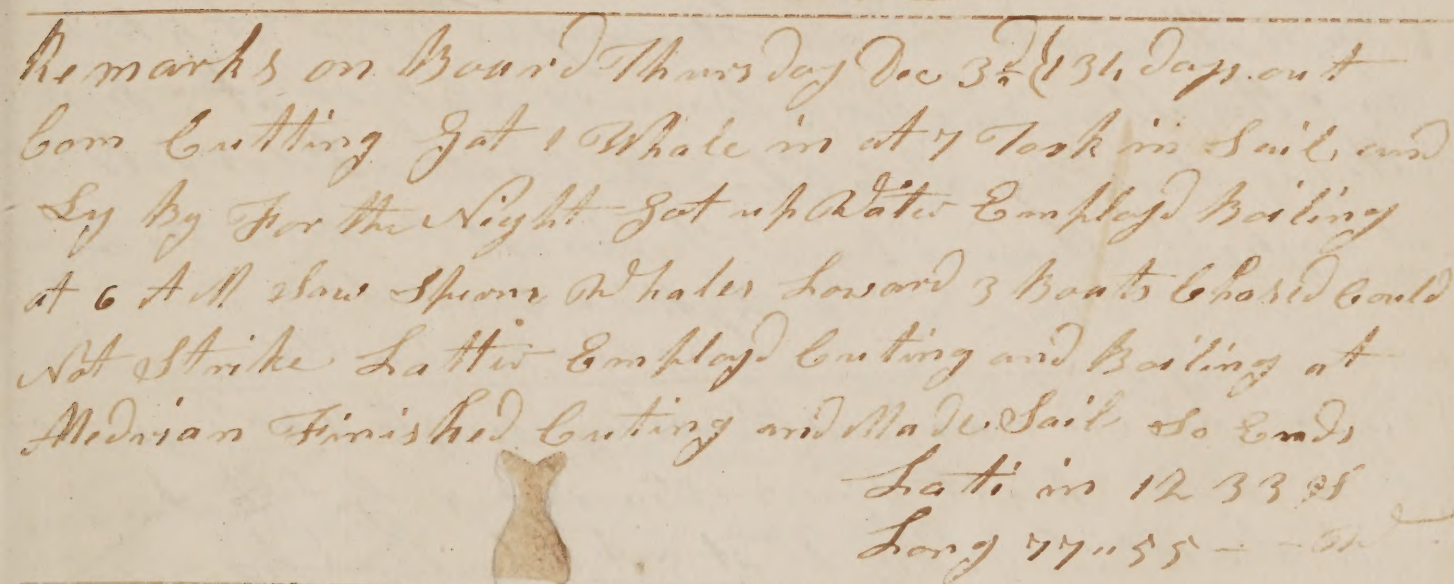 Remarks on Board Thursday Dec 3rd { 134 days out
Com Cutting Got 1 Whale in at 7 Took in Sail and
Ly By For the Night Got up Water Employd Boiling
at 6 A M Saw Sperm Whales Loward 3 Boats Chased Could
Not Strike Latter Employd Cuting and Boiling at
Medrian Finished Cuting and Made Sail So Ends
Lati in 12 33 S
Long 77 " 55 - - W